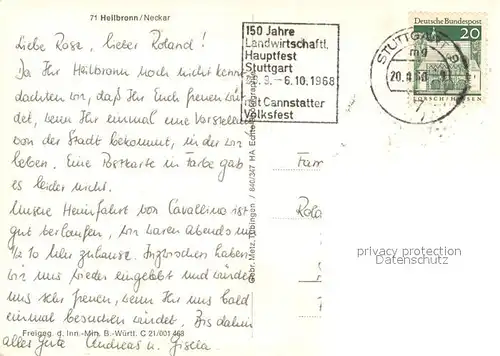 71 Heilbronn/Neckar
Liebe Rose, lieber Roland!
Da Ihr Heilbronn noch nicht kennt
dachten wir, daß Ihr Euch freuen würdet
det, wenn Ihr einmal eine Vorstellung
von der Stadt bekommt, in der wir
leben. Eine Postkarte in Farbe gab
es leider nicht.
Unsere Heimfahrt von Cavallino ist
gut verlaufen, wir waren abends um
1/2 10 Uhr zuhause. Inzwischen haben
wir uns wieder eingelebt und würden
uns sehr freuen, wenn Ihr uns bald
einmal besuchen würdet. Bis dahin
alles Gute Andreas u. Gisela
Freigeg. d. Inn.-Min. B.-Württ. C 21/001 468
Gebr. Metz, Tübingen / 840/347 HA Echte
150 Jahre
Landwirtschaftl.
Hauptfest
Stuttgart
9. - 6.10.1968
mit Cannstatter
Volksfest
STUTTGART 9
mg
Deutsche Bundespost
20
LORSCH/HESSEN
Fam
Rola
privacy protection
watermark